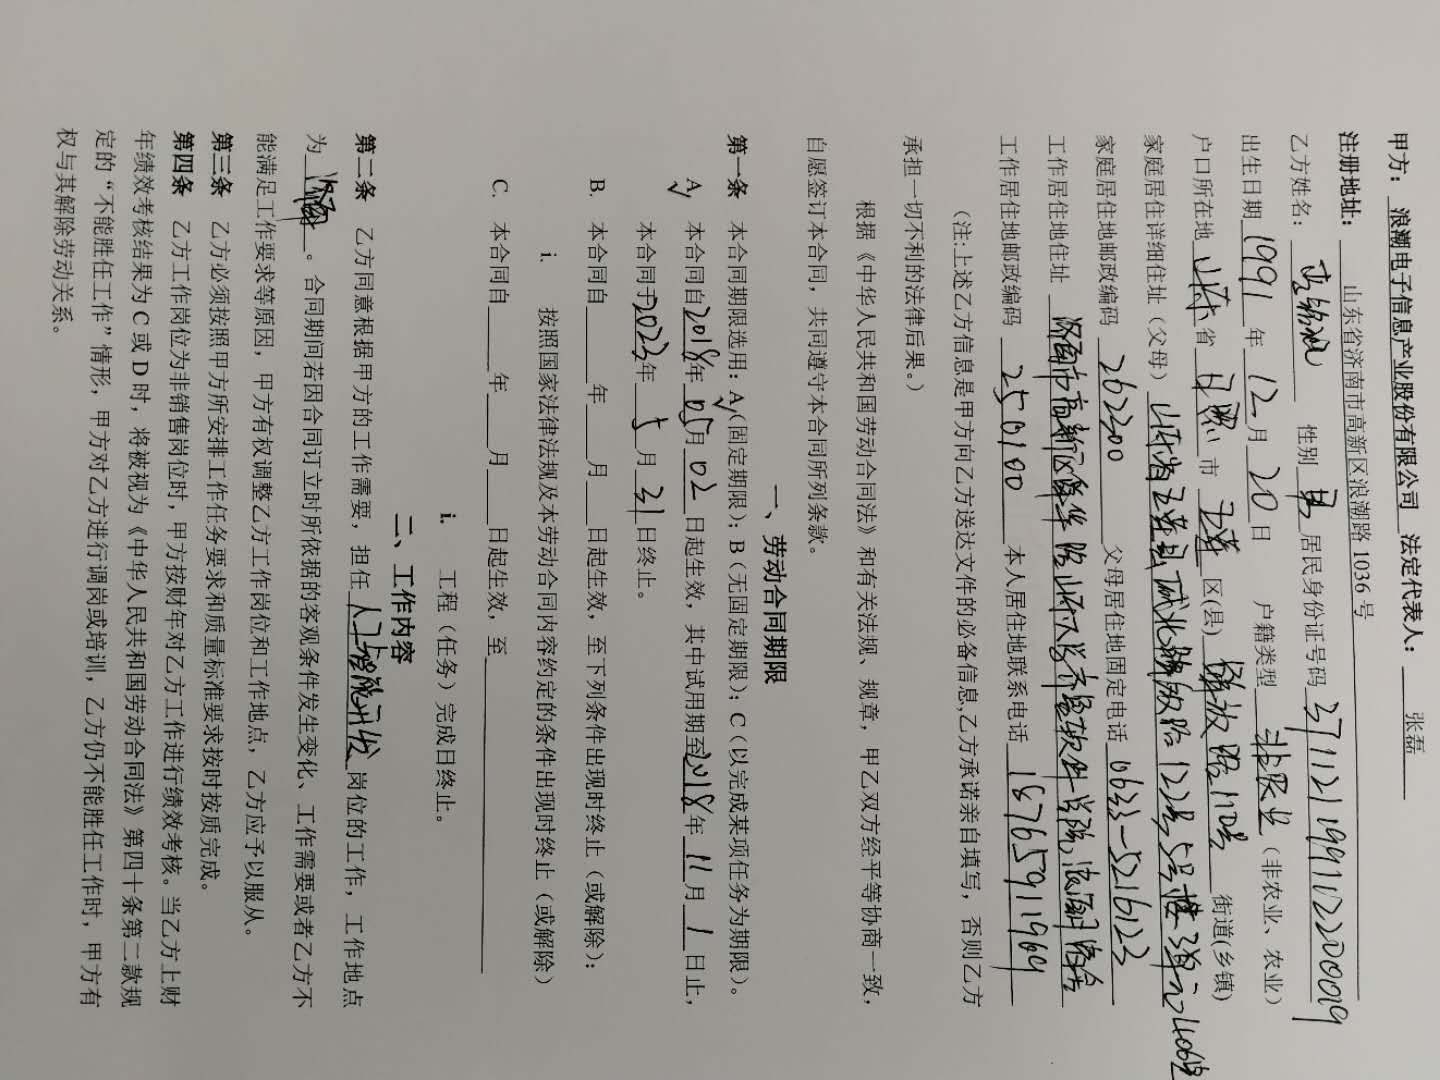 甲方：浪潮电子信息产业股份有限公司 法定代表人：张磊
注册地址：山东省济南市高新区浪潮路 1036 号
乙方姓名： 性别 男 居民身份证号码 371121199112200019
出生日期 1991 年 12 月 20 日 户籍类型 非农业 （非农业、农业）
户口所在地 山东 省 日照 市 五莲 区(县) 解放路112号 街道(乡镇)
家庭居住详细住址（父母） 山东省五莲县城北解放路122号5号楼3单元406室
家庭居住地邮政编码 262300 父母居住地固定电话 0633-5216123
工作居住地住址 济南市高新区舜华路山东大学齐鲁软件学院浪潮宿舍
工作居住地邮政编码 250100 本人居住地联系电话 18765911969
（注:上述乙方信息是甲方向乙方送达文件的必备信息,乙方承诺亲自填写，否则乙方
承担一切不利的法律后果。）
根据《中华人民共和国劳动合同法》和有关法规、规章，甲乙双方经平等协商一致，
自愿签订本合同，共同遵守本合同所列条款。
一、劳动合同期限
第一条 本合同期限选用：A√（固定期限）；B（无固定期限）；C（以完成某项任务为期限）。
A√ 本合同自 2018 年 05 月 02 日起生效，其中试用期至 2018 年 11 月 1 日止，
本合同于 2023 年 5 月 31 日终止。
B 本合同自 年 月 日起生效，至下列条件出现时终止（或解除）：
i. 按照国家法律法规及本劳动合同内容约定的条件出现时终止（或解除）
C. 本合同自 年 月 日起生效，至
i. 工程（任务）完成日终止。
二、工作内容
第二条 乙方同意根据甲方的工作需要，担任 人工智能开发 岗位的工作，工作地点
为 济南 。合同期间若因合同订立时所依据的客观条件发生变化、工作需要或者乙方不
能满足工作要求等原因，甲方有权调整乙方工作岗位和工作地点，乙方应予以服从。
第三条 乙方必须按照甲方所安排工作任务要求和质量标准要求按时按质完成。
第四条 乙方工作岗位为非销售岗位时，甲方按财年对乙方工作进行绩效考核。当乙方上财
年绩效考核结果为 C 或 D 时，将被视为《中华人民共和国劳动合同法》第四十条第二款规
定的“不能胜任工作”情形，甲方对乙方进行调岗或培训，乙方仍不能胜任工作时，甲方有
权与其解除劳动关系。